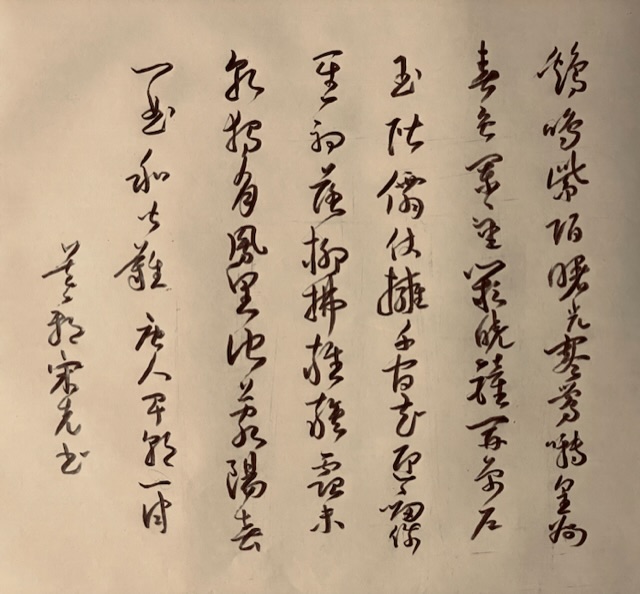 鷄鳴紫陌曙光寒鶯囀皇州
春色闌金闕曉鐘開萬户
玉階僊仗擁千官花迎劍佩
星初落柳拂旌旗露未
乾獨有鳳皇池上客陽春
一曲和皆難 唐人早朝一首
宋克书